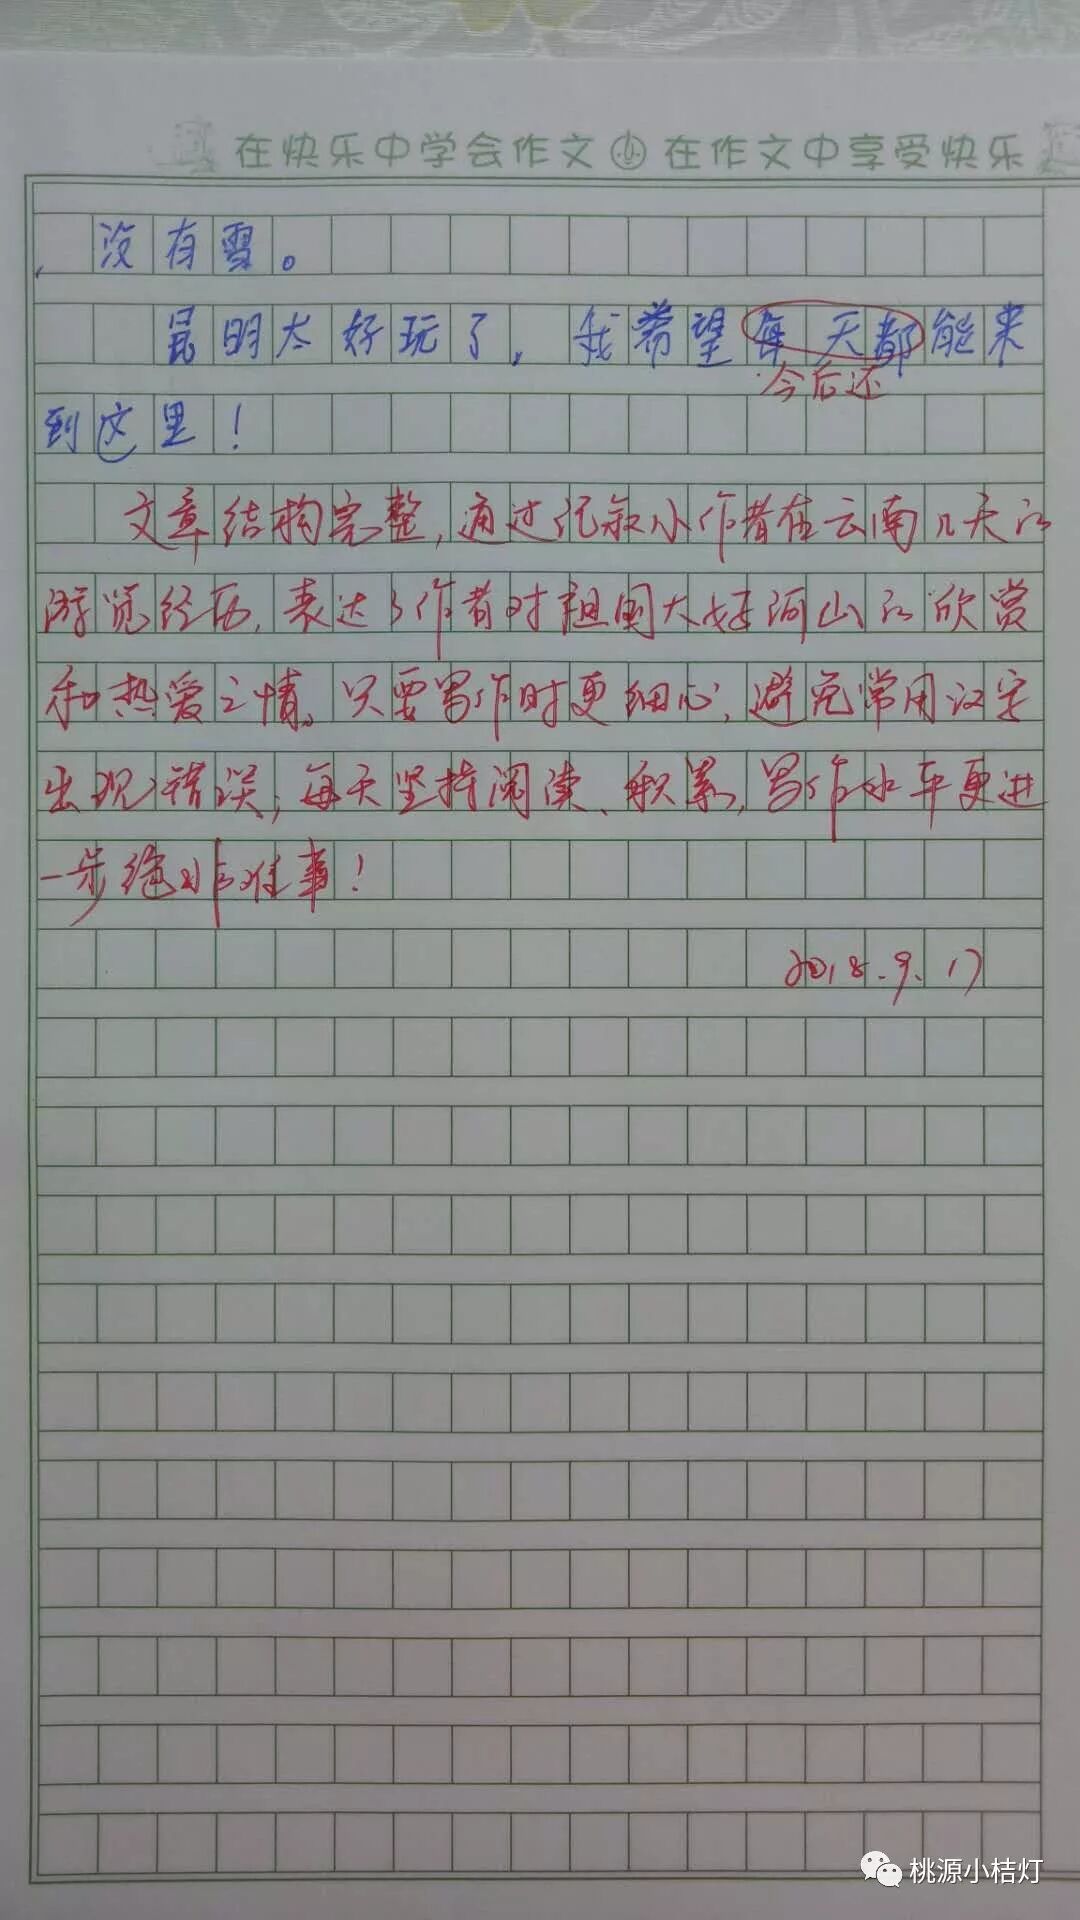 在快乐中学会作文 在作文中享受快乐
没有雪。
昆明太好玩了,我希望每天都能来
今后还
到这里！
文章结构完整,通过记叙小作者在云南几天的
游览经历,表达了作者对祖国大好河山的欣赏
和热爱之情。只要写作时更细心,避免常用汉字
出现错误,每天坚持阅读、积累,写作水平更进
一步绝非难事！
2018.9.17
桃源小桔灯